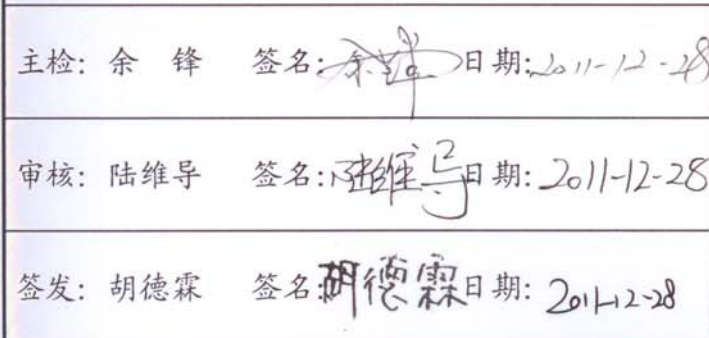 主检: 余 锋 签名: 余锋 日期: 2011-12-28
审核: 陆维导 签名: 陆维导 日期: 2011-12-28
签发: 胡德霖 签名: 胡德霖 日期: 2011-12-28